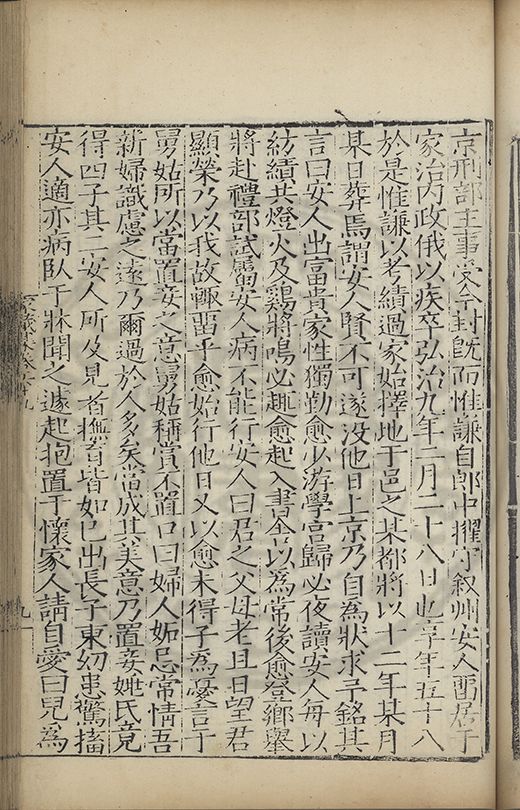 京刑部主事受今封既而惟謙自郎中擢守叙州安人畱居于
家治内政俄以疾卒弘治九年二月二十八日也享年五十八
於是惟謙以考績過家始擇地于邑之某都將以十二年某月
某日葬焉謂安人賢不可遂没他日上京乃自為狀求予銘其
言曰安人出富貴家性獨勤愈少游學宫歸必夜讀安人每以
紡績共燈火及鷄將鳴必趣愈起入書舍以為常後愈登鄉舉
將赴禮部試屬安人病不能行安人曰君之父母老且日望君
顯榮乃以我故輙畱乎愈始行他日又以愈未得子為憂言于
舅姑所以當置妾之意舅姑稱賞不置口曰婦人妬忌常情吾
新婦識慮之遠乃爾過於人多矣當成其美意乃置妾姚氏竟
得四子其二安人所及見者撫育皆如已出長子東幼患驚搐
安人適亦病臥于牀聞之遽起抱置于懷家人請自愛曰兒為
家藏集卷六十九
九